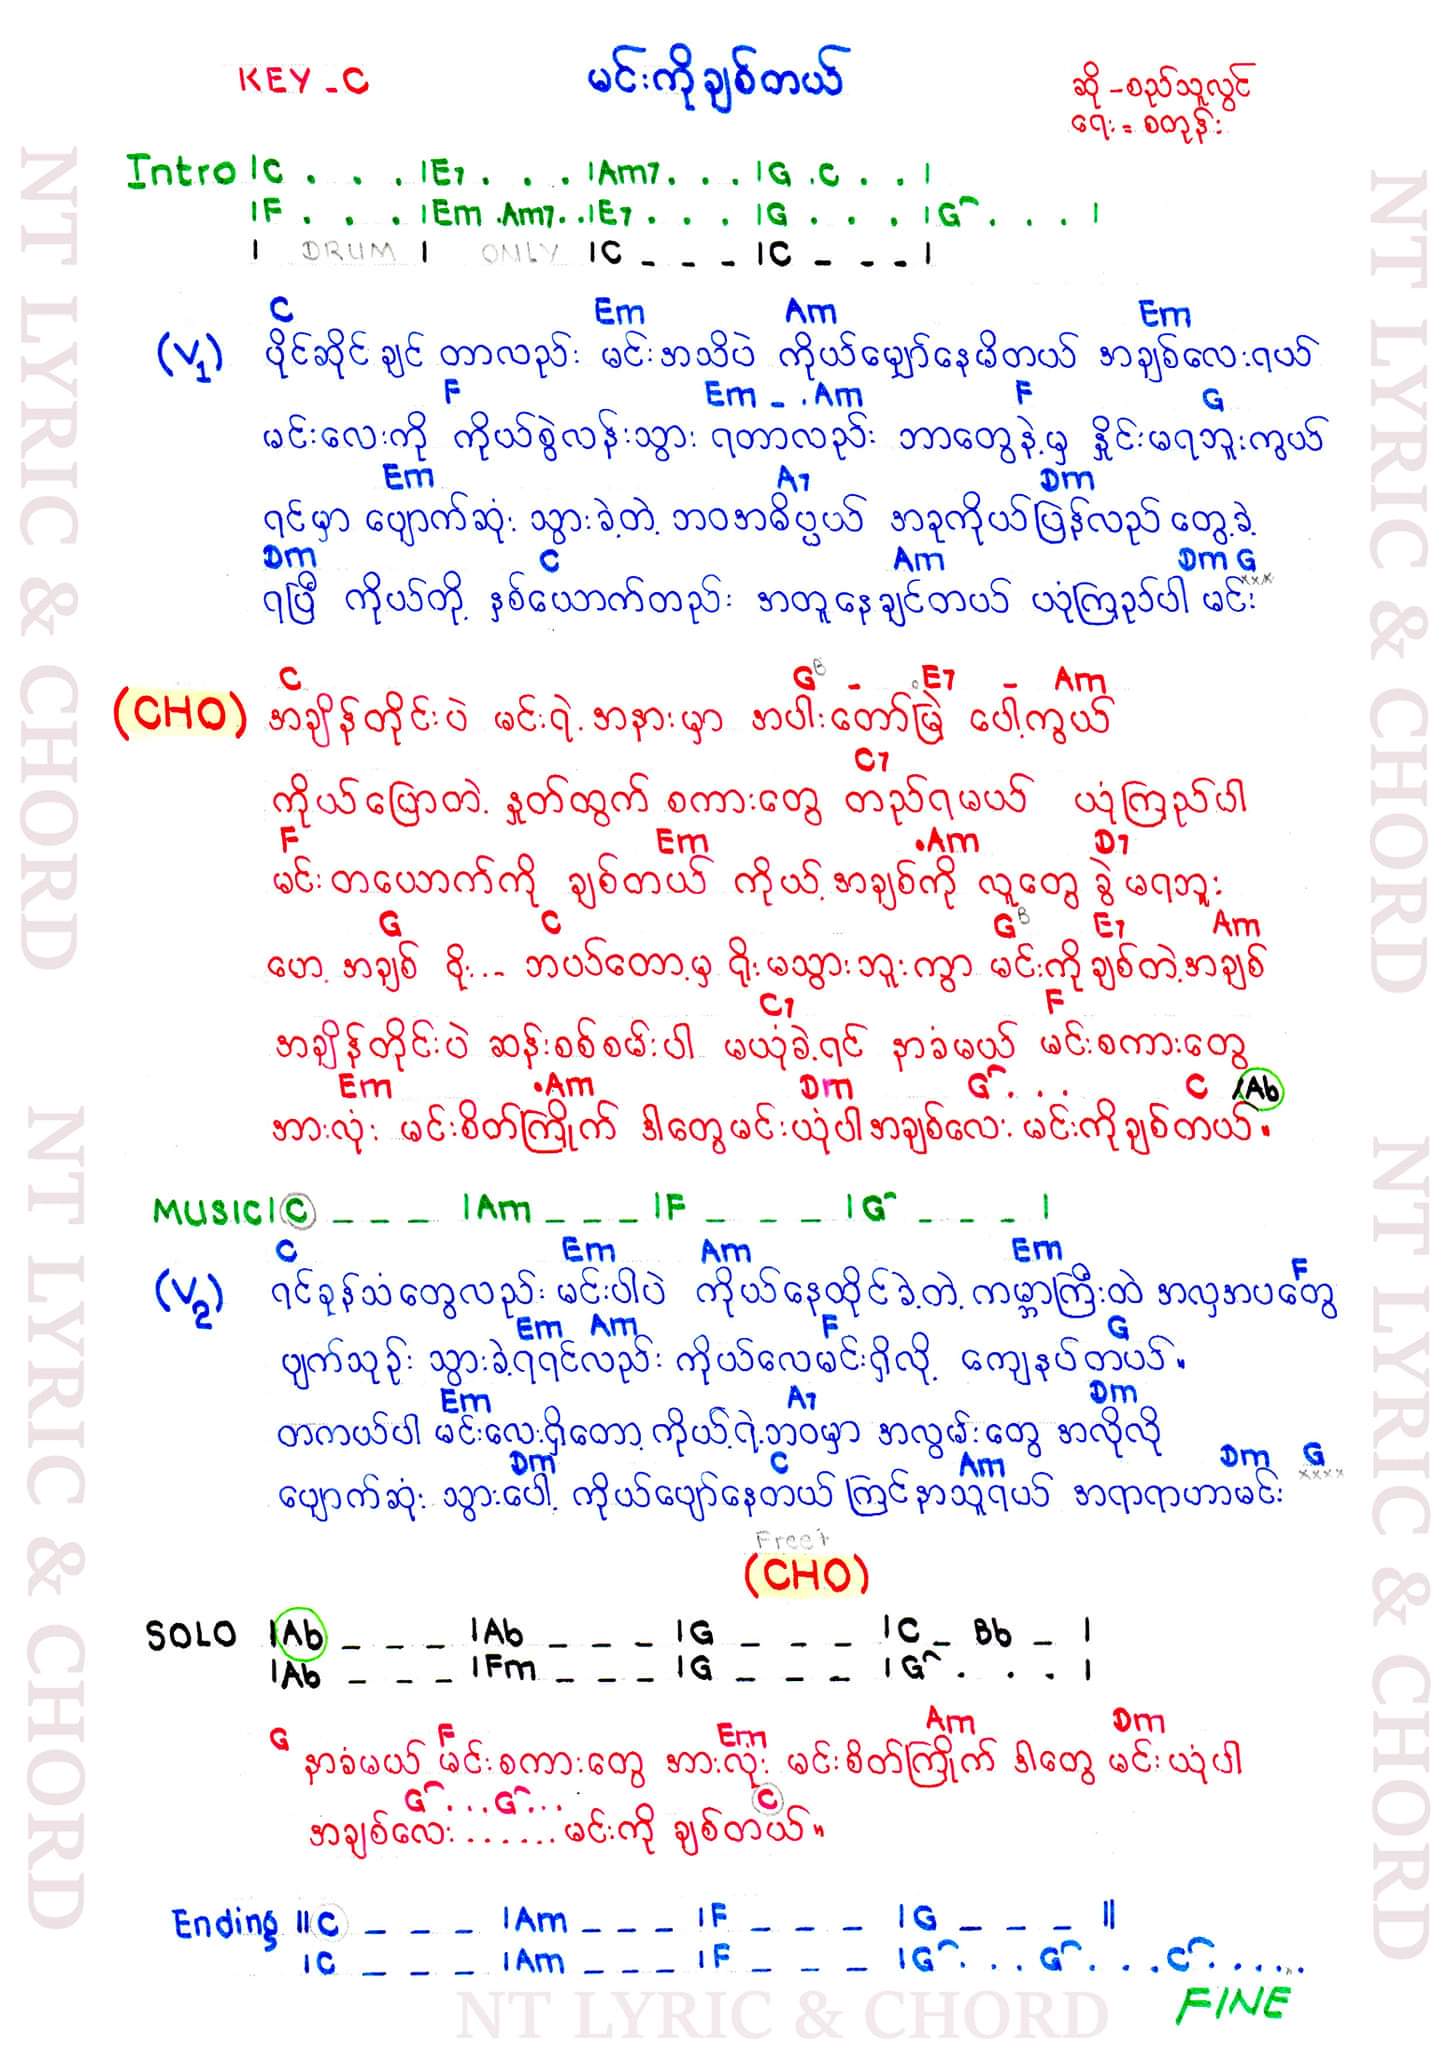 KEY - C
မင်းကိုချစ်တယ်
ဆို - စည်သူလွင်
ရေး = စတုန်း
Intro |C . . . |E7 . . . |Am7 . . . |G . C . . |
|F . . . |Em . Am7 . . |E7 . . . |G . . . |G^ . . . |
| DRUM | ONLY |C _ _ _ |C _ _ _ |
C Em Am Em
(V1) ပိုင်ဆိုင်ချင် တာလည်း မင်းအသိပဲ ကိုယ်မျှော်နေမိတယ် အချစ်လေးရယ်
F Em - . Am F G
မင်းလေးကို ကိုယ်စွဲလန်းသွား ရတာလည်း ဘာတွေနဲ့မှ နှိုင်းမရဘူးကွယ်
Em A7 Dm
ရင်မှာ ပျောက်ဆုံး သွားခဲ့တဲ့ ဘဝအဓိပ္ပယ် အခုကိုယ်ပြန်လည် တွေ့ခဲ့
Dm C Am Dm G xxx
ရပြီ ကိုယ်တို့ နှစ်ယောက်တည်း အတူနေချင်တယ် ယုံကြည်ပါ မင်း
C G B - . E7 - Am
(CHO) အချိန်တိုင်းပဲ မင်းရဲ့အနားမှာ အပါးတော်မြဲ ပေါ့ကွယ်
C7
ကိုယ်ပြောတဲ့ နှုတ်ထွက် စကားတွေ တည်ရမယ် ယုံကြည်ပါ
F Em . Am D7
မင်းတယောက်ကို ချစ်တယ် ကိုယ့်အချစ်ကို လူတွေ ခွဲ မရဘူး
G C G B E7 Am
ဟေ့ အချစ် ရိုး... ဘယ်တော့မှ ရိုးမသွားဘူးကွာ မင်းကိုချစ်တဲ့အချစ်
C7 F
အချိန်တိုင်းပဲ ဆန်းစစ်စမ်းပါ မယုံခဲ့ရင် နာခံမယ် မင်းစကားတွေ
Em . Am Dm G^ . . . C /Ab
အားလုံး မင်းစိတ်ကြိုက် ဒါတွေမင်းယုံပါအချစ်လေး မင်းကိုချစ်တယ်။
MUSIC |C _ _ _ |Am _ _ _ |F _ _ _ |G^ _ _ _ |
C Em Am Em F
(V2) ရင်ခုန်သံတွေလည်း မင်းပါပဲ ကိုယ်နေထိုင်ခဲ့တဲ့ ကမ္ဘာကြီးထဲ အလှအပတွေ
Em Am F G
ပျက်သုဉ်း သွားခဲ့ရရင်လည်း ကိုယ်လေမင်းရှိလို့ ကျေနပ်တယ်။
Em A7 Dm
တကယ်ပါ မင်းလေးရှိတော့ ကိုယ့်ရဲ့ဘဝမှာ အလွမ်းတွေ အလိုလို
Dm C Am Dm G xxxx
ပျောက်ဆုံး သွားပေါ့ ကိုယ်ပျော်နေတယ် ကြင်နာသူရယ် အရာရာဟာမင်း
(CHO)
SOLO |Ab _ _ _ |Ab _ _ _ |G _ _ _ |C _ Bb _ |
|Ab _ _ _ |Fm _ _ _ |G _ _ _ |G^ . . . |
G F Em Am Dm
နာခံမယ် မင်းစကားတွေ အားလုံး မင်းစိတ်ကြိုက် ဒါတွေ မင်းယုံပါ
G^ . . . G^ . . . C
အချစ်လေး ....... မင်းကို ချစ်တယ်။
Ending ||C _ _ _ |Am _ _ _ |F _ _ _ |G _ _ _ ||
|C _ _ _ |Am _ _ _ |F _ _ _ |G^ . . . G^ . . . C^ . . . . .
FINE
NT LYRIC & CHORD
NT LYRIC & CHORD
NT LYRIC & CHORD
NT LYRIC & CHORD
NT LYRIC & CHORD